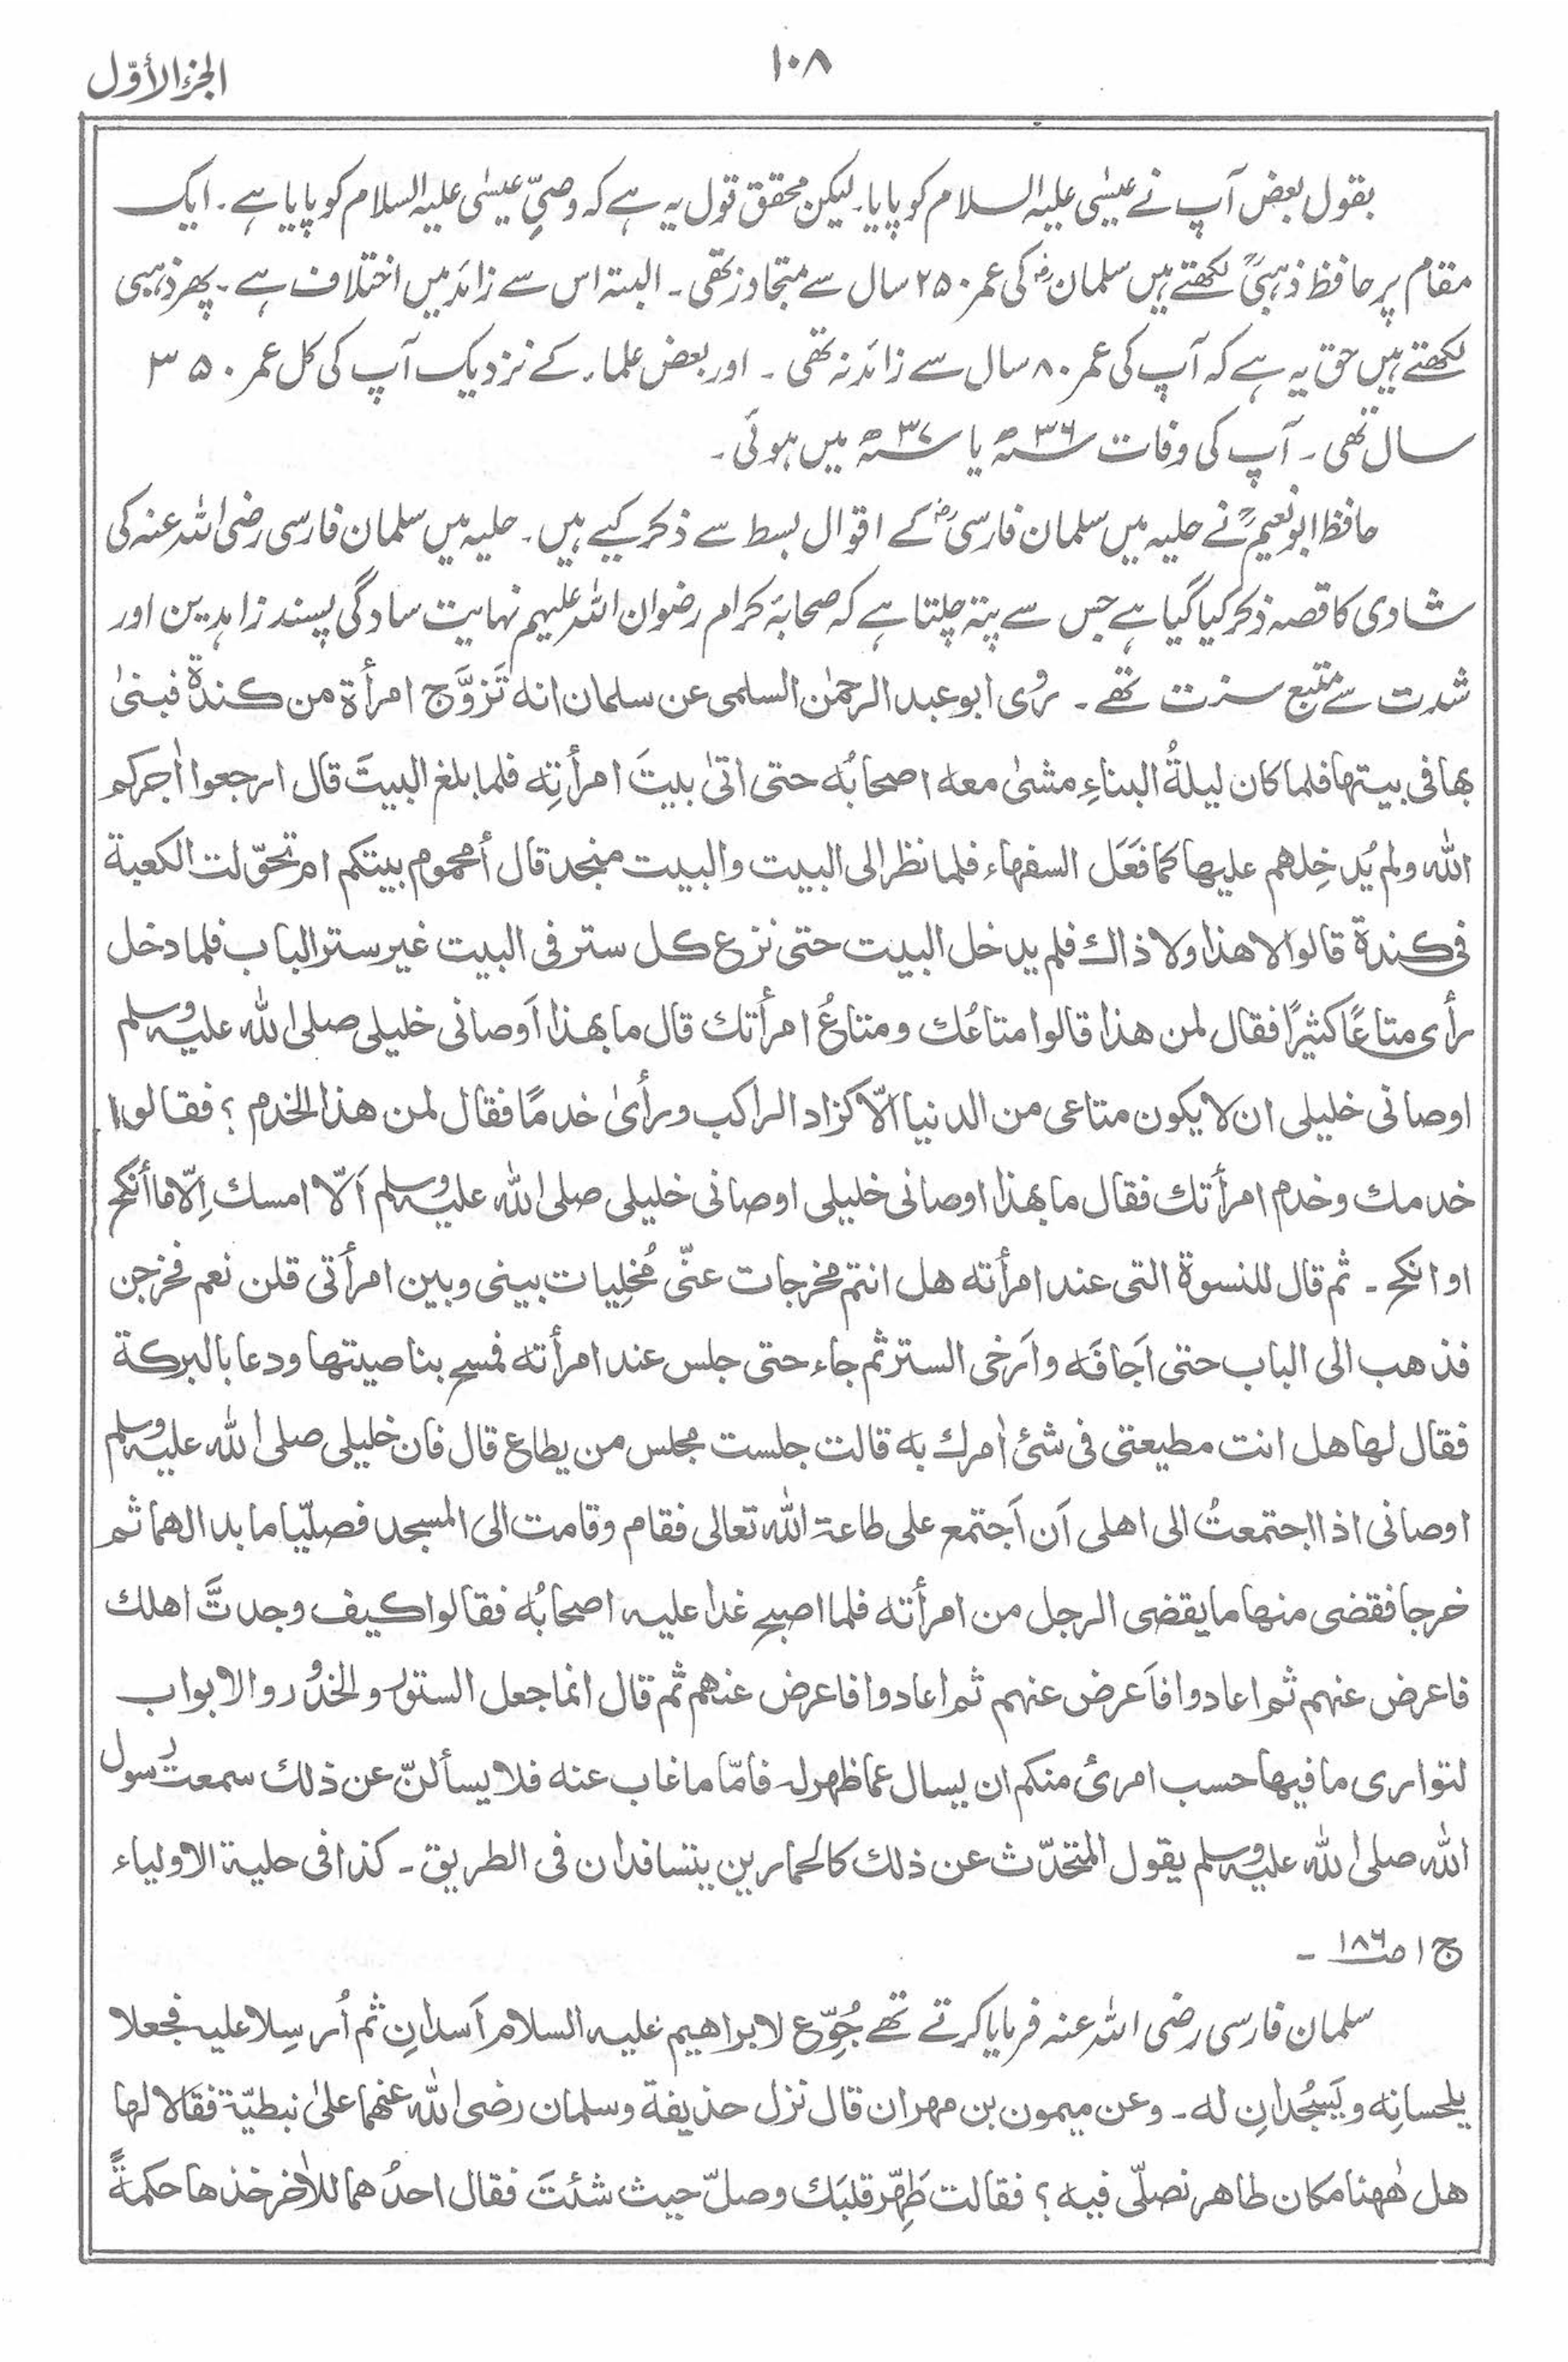 ۱۰۸
الجزء الأوّل
بقول بعض آپ نے عیسٰی علیہ السلام کو پایا۔ لیکن محقق قول یہ ہے کہ وصیِّ عیسٰی علیہ السلام کو پایا ہے۔ ایک
مقام پر حافظ ذہبیؒ لکھتے ہیں سلمانؓ کی عمر ۲۵۰ سال سے متجاوز تھی۔ البتہ اس سے زائد میں اختلاف ہے۔ پھر ذہبی
لکھتے ہیں حق یہ ہے کہ آپ کی عمر ۸۰ سال سے زائد نہ تھی ۔ اور بعض علماء کے نزدیک آپ کی کل عمر ۳۵۰
سال تھی ۔ آپ کی وفات ۳۶ھ یا ۳۷ھ میں ہوئی ۔
حافظ ابو نعیمؒ نے حلیہ میں سلمان فارسیؓ کے اقوال بسط سے ذکر کیے ہیں ۔ حلیہ میں سلمان فارسی رضی اللہ عنہ کی
شادی کا قصہ ذکر کیا گیا ہے جس سے پتہ چلتا ہے کہ صحابۂ کرام رضوان اللہ علیہم نہایت سادگی پسند زاہدین اور
شدت سے متبع سنت تھے ۔ رُوی ابو عبد الرحمٰن السلمی عن سلمان انہ تَزَوَّج امرأة من کندة فبنیٰ
بھا فی بیتھا فلما کان لیلةُ البناءِ مشیٰ معہ اصحابُہ حتی اتیٰ بیتَ امرأتِہ فلما بلغ البیتَ قال ارجعوا اٰجرکم
اللّٰہ ولم یُدخِلھم علیھا کما فَعَل السفھاء فلما نظر الی البیت والبیت منجد قال أمحموم بیتکم ام تحوّلت الکعبة
فی کندة قالوا لا ھذا ولا ذاك فلم یدخل البیت حتی نزع کل ستر فی البیت غیر ستر الباب فلما دخل
رأی متاعًا کثیرًا فقال لمن ھذا قالوا متاعُك ومتاعُ امرأتك قال ما بھذا اَوصانی خلیلی صلی اللّٰہ علیہ وسلم
اوصانی خلیلی ان لا یکون متاعی من الدنیا الّا کزاد الراکب ورأیٰ خدمًا فقال لمن ھذا الخدم ؟ فقالوا
خدمك وخدم امرأتك فقال ما بھذا اوصانی خلیلی اوصانی خلیلی صلی اللّٰہ علیہ وسلم اَلّا امسك اِلّا ما أنکح
او انکح ۔ ثم قال للنسوة التی عند امرأتہ ھل انتم مخرجات عنّی مُخلِیات بینی وبین امرأتی قلن نعم فخرجن
فذھب الی الباب حتی اَجافَہ واَرخی الستر ثم جاء حتی جلس عند امرأتہ فمسح بناصیتھا ودعا بالبرکة
فقال لھا ھل انت مطیعتی فی شئ اٰمرك بہ قالت جلست مجلس من یطاع قال فان خلیلی صلی اللّٰہ علیہ وسلم
اوصانی اذا اجتمعتُ الی اھلی اَن اَجتمع علی طاعۃ اللّٰہ تعالی فقام وقامت الی المسجد فصلّیا ما بدا لھما ثم
خرجا فقضی منھا ما یقضی الرجل من امرأتہ فلما اصبح غدا علیہ اصحابُہ فقالوا کیف وجدتَّ اھلك
فاعرض عنھم ثم اعادوا فاَعرض عنھم ثم اعادوا فاعرض عنھم ثم قال انما جعل الستور والخدُور والابواب
لتواری ما فیھا حسب امرئ منکم ان یسال عما ظھر لہ فامّا ما غاب عنہ فلا یسألنّ عن ذلك سمعت رسول
اللّٰہ صلی اللّٰہ علیہ وسلم یقول المتحدّث عن ذلك کالحمارین یتسافدان فی الطریق ۔ کذا فی حلیۃ الاولیاء
ج ۱ ص ۱۸۶ ۔
سلمان فارسی رضی اللہ عنہ فرمایا کرتے تھے جُوِّع لابراھیم علیہ السلام اَسدانِ ثم اُرسِلا علیہ فجعلا
یلحسانِہ ویَسجُدانِ لہ ۔ وعن میمون بن مھران قال نزل حذیفۃ وسلمان رضی اللّٰہ عنھما علیٰ نبطیّۃ فقالا لھا
ھل ھٰھنا مکان طاھر نصلّی فیہ ؟ فقالت طَھِّر قلبَك وصلّ حیث شئتَ فقال احدُھما للاٰخر خذھا حکمةً